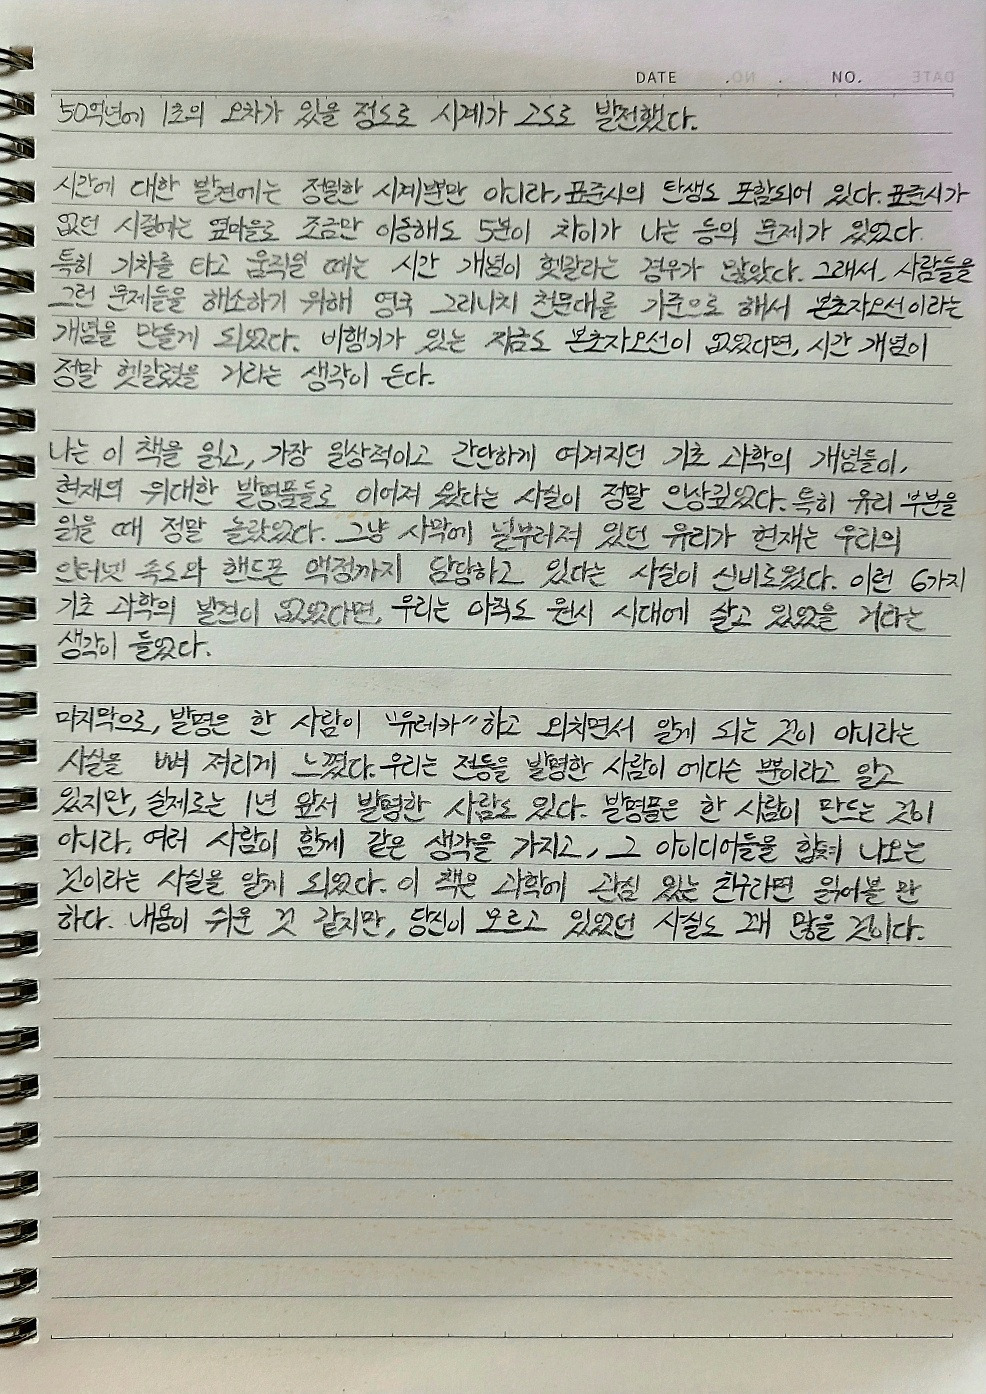 DATE . . NO.
50억년에 1초의 오차가 있을 정도로 시계가 고도로 발전했다.
시간에 대한 발견에는 정밀한 시계뿐만 아니라, 표준시의 탄생도 포함되어 있다. 표준시가
없던 시절에는 옆마을로 조금만 이동해도 5분이 차이가 나는 등의 문제가 있었다.
특히 기차를 타고 움직일 때는 시간 개념이 헷갈리는 경우가 많았다. 그래서, 사람들을
그런 문제들을 해소하기 위해 영국 그리니치 천문대를 기준으로 해서 본초자오선이라는
개념을 만들게 되었다. 비행기가 있는 지금도 본초자오선이 없었다면, 시간 개념이
정말 헷갈렸을 거라는 생각이 든다.
나는 이 책을 읽고, 가장 일상적이고 간단하게 여겨지던 기초 과학의 개념들이,
현재의 위대한 발명품들로 이어져 왔다는 사실이 정말 인상깊었다. 특히 유리 부분을
읽을 때 정말 놀랐었다. 그냥 사막에 널부러져 있던 유리가 현재는 우리의
인터넷 속도와 핸드폰 액정까지 담당하고 있다는 사실이 신비로웠다. 이런 6가지
기초 과학의 발견이 없었다면, 우리는 아직도 원시 시대에 살고 있었을 거라는
생각이 들었다.
마지막으로, 발명은 한 사람이 "유레카"하고 외치면서 알게 되는 것이 아니라는
사실을 뼈 저리게 느꼈다. 우리는 전등을 발명한 사람이 에디슨 뿐이라고 알고
있지만, 실제로는 1년 앞서 발명한 사람도 있다. 발명품은 한 사람이 만드는 것이
아니라, 여러 사람이 함께 같은 생각을 가지고, 그 아이디어들을 합쳐 나오는
것이라는 사실을 알게 되었다. 이 책은 과학에 관심 있는 친구라면 읽어볼 만
하다. 내용이 쉬운 것 같지만, 당신이 모르고 있었던 사실도 꽤 많을 것이다.